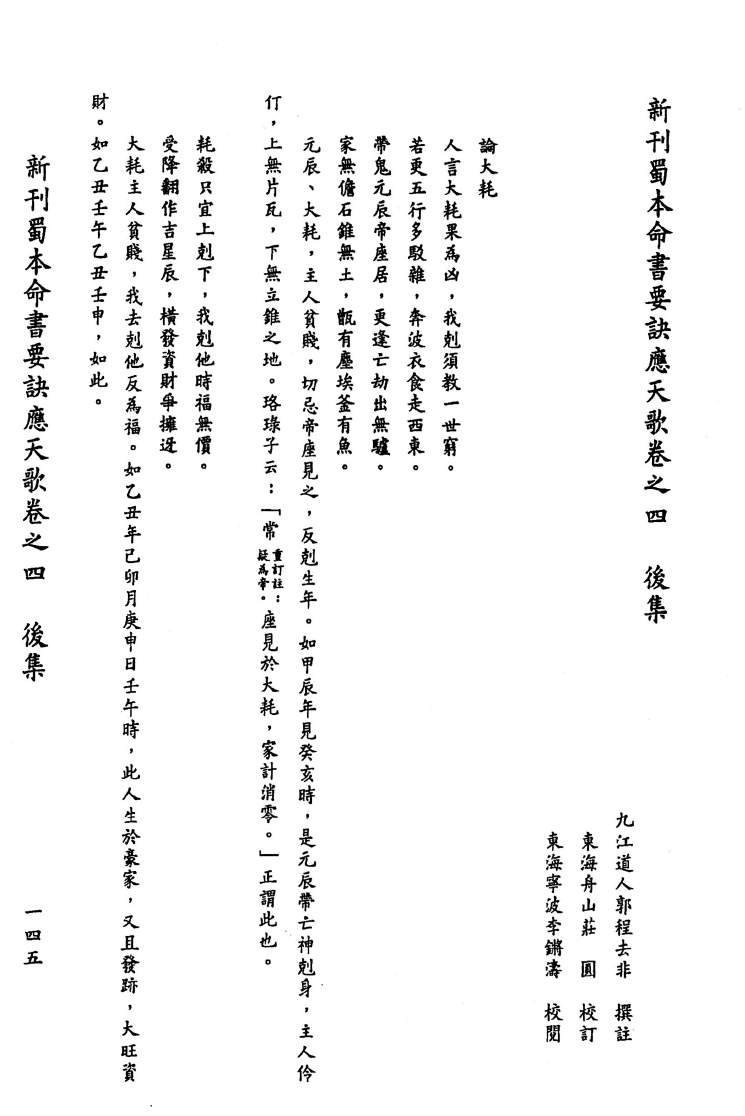 新刊蜀本命書要訣應天歌卷之四　後集
九江道人郭程去非　撰註
東海舟山莊　圓　校訂
東海寧波李鏘濤　校閱
論大耗
人言大耗果為凶，我剋須教一世窮。
若更五行多駁雜，奔波衣食走西東。
帶鬼元辰帝座居，更逢亡劫出無驢。
家無儋石錐無土，甑有塵埃釜有魚。
元辰、大耗，主人貧賤，切忌帝座見之，反剋生年。如甲辰年見癸亥時，是元辰帶亡神剋身，主人伶
仃，上無片瓦，下無立錐之地。珞琭子云：「常重訂註：疑為帝。座見於大耗，家計消零。」正謂此也。
耗殺只宜上剋下，我剋他時福無價。
受降翻作吉星辰，橫發資財爭擁迓。
大耗主人貧賤，我去剋他反為福。如乙丑年己卯月庚申日壬午時，此人生於豪家，又且發跡，大旺資
財。如乙丑壬午乙丑壬申，如此。
新刊蜀本命書要訣應天歌卷之四　後集
一四五